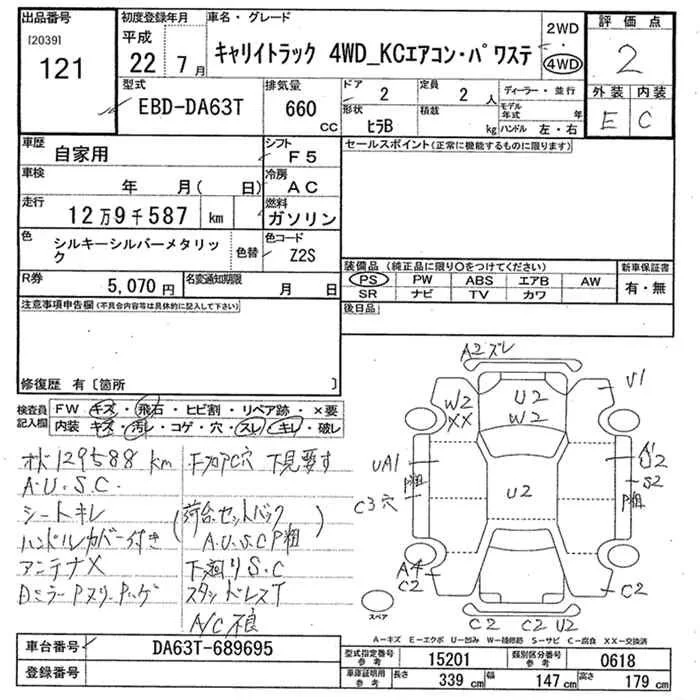 出品番号
[2039]
121
初度登録年月
平成
22 7月
車名・グレード
キャリイトラック 4WD_KCエアコン・パワステ
2WD
・
4WD
評価点
2
外装 内装
E C
型式
EBD-DA63T
排気量
660 CC
ドア 2
定員 2 人
形状 ヒラB
積載 kg
ディーラー・並行
モデル年式 年
ハンドル 左・右
車歴
自家用
シフト
F5
車検
年 月( 日)
冷房
AC
走行
12万9千587 km
燃料
ガソリン
色
シルキーシルバーメタリック
色替
色コード
Z2S
R券
5,070円
名変通知期限
月 日
セールスポイント(正常に機能するものに限ります)
装備品(純正品に限り○をつけてください)
PS PW ABS エアB AW
SR ナビ TV カワ
新車保証書
有・無
後日品
注意事項申告欄(不具合内容等は具体的に記入して下さい)
修復歴 有〔箇所 〕
検査員記入欄
FW キズ・飛石・ヒビ割・リペア跡・×要
内装 キズ・汚レ・コゲ・穴・スレ・キレ・破レ
129588 km
A.U.S.C.
シートキレ
ハンドルカバー付き
アンテナX
下見要す
荷台セットバック
A.U.S.C P粗
下廻りS.C
スタッドレスT
A/C不良
A2ズレ
U1
W2
XX
U2
W2
UA1
P粗
C3穴
U2
A1
U2
S2
P粗
A4
C2
C2
C2 C2 U2
スペア
A-キズ E-エクボ U-凹み W-補修跡 S-サビ C-腐食 XX-交換済
車台番号
DA63T-689695
登録番号
型式指定番号 参考
15201
類別区分番号 参考
0618
車庫証明用 参考
長さ 339 cm
幅 147 cm
高さ 179 cm